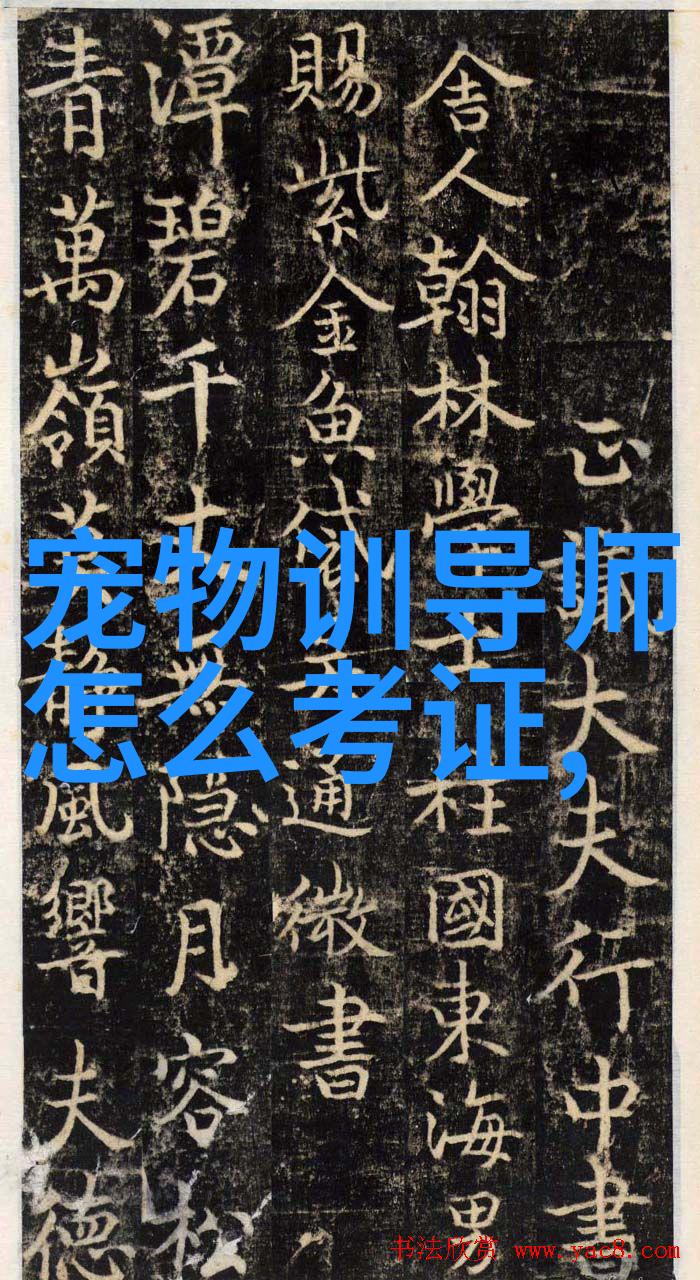 宠物训导师
怎么考证,
正議大夫行中書
舍人翰林學士柱國東海男
賜紫金魚袋通微書
潭碧千無隱月容松
青萬嶺靜風響夫德
书法欣赏 www.yac8.com